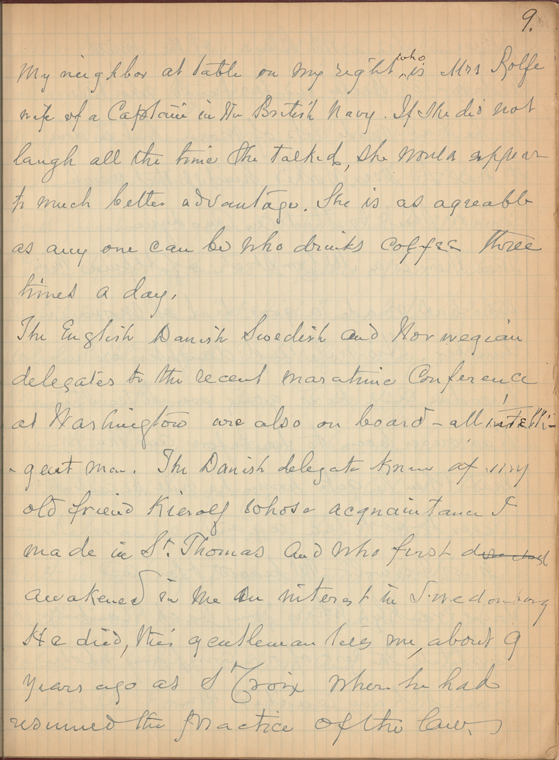 9.
My neighbor at table on my right who is Mrs Rolfe
wife of a Captain in the British Navy. If she did not
laugh all the time she talked, she would appear
to much better advantage. She is as agreable
as any one can be who drinks coffee three
times a day.
The English Danish Swedish and Norwegian
delegates to the recent maratime Conference
at Washington are also on board - all intelli-
-gent men. The Danish delegate knew of my
old friend Kierolf whose acquaintance I
made in St. Thomas and who first
awakened in me an interest in Swedenborg
He died, this gentleman tells me, about 9
years ago at St Croix where he had
resumed the practice of the law.